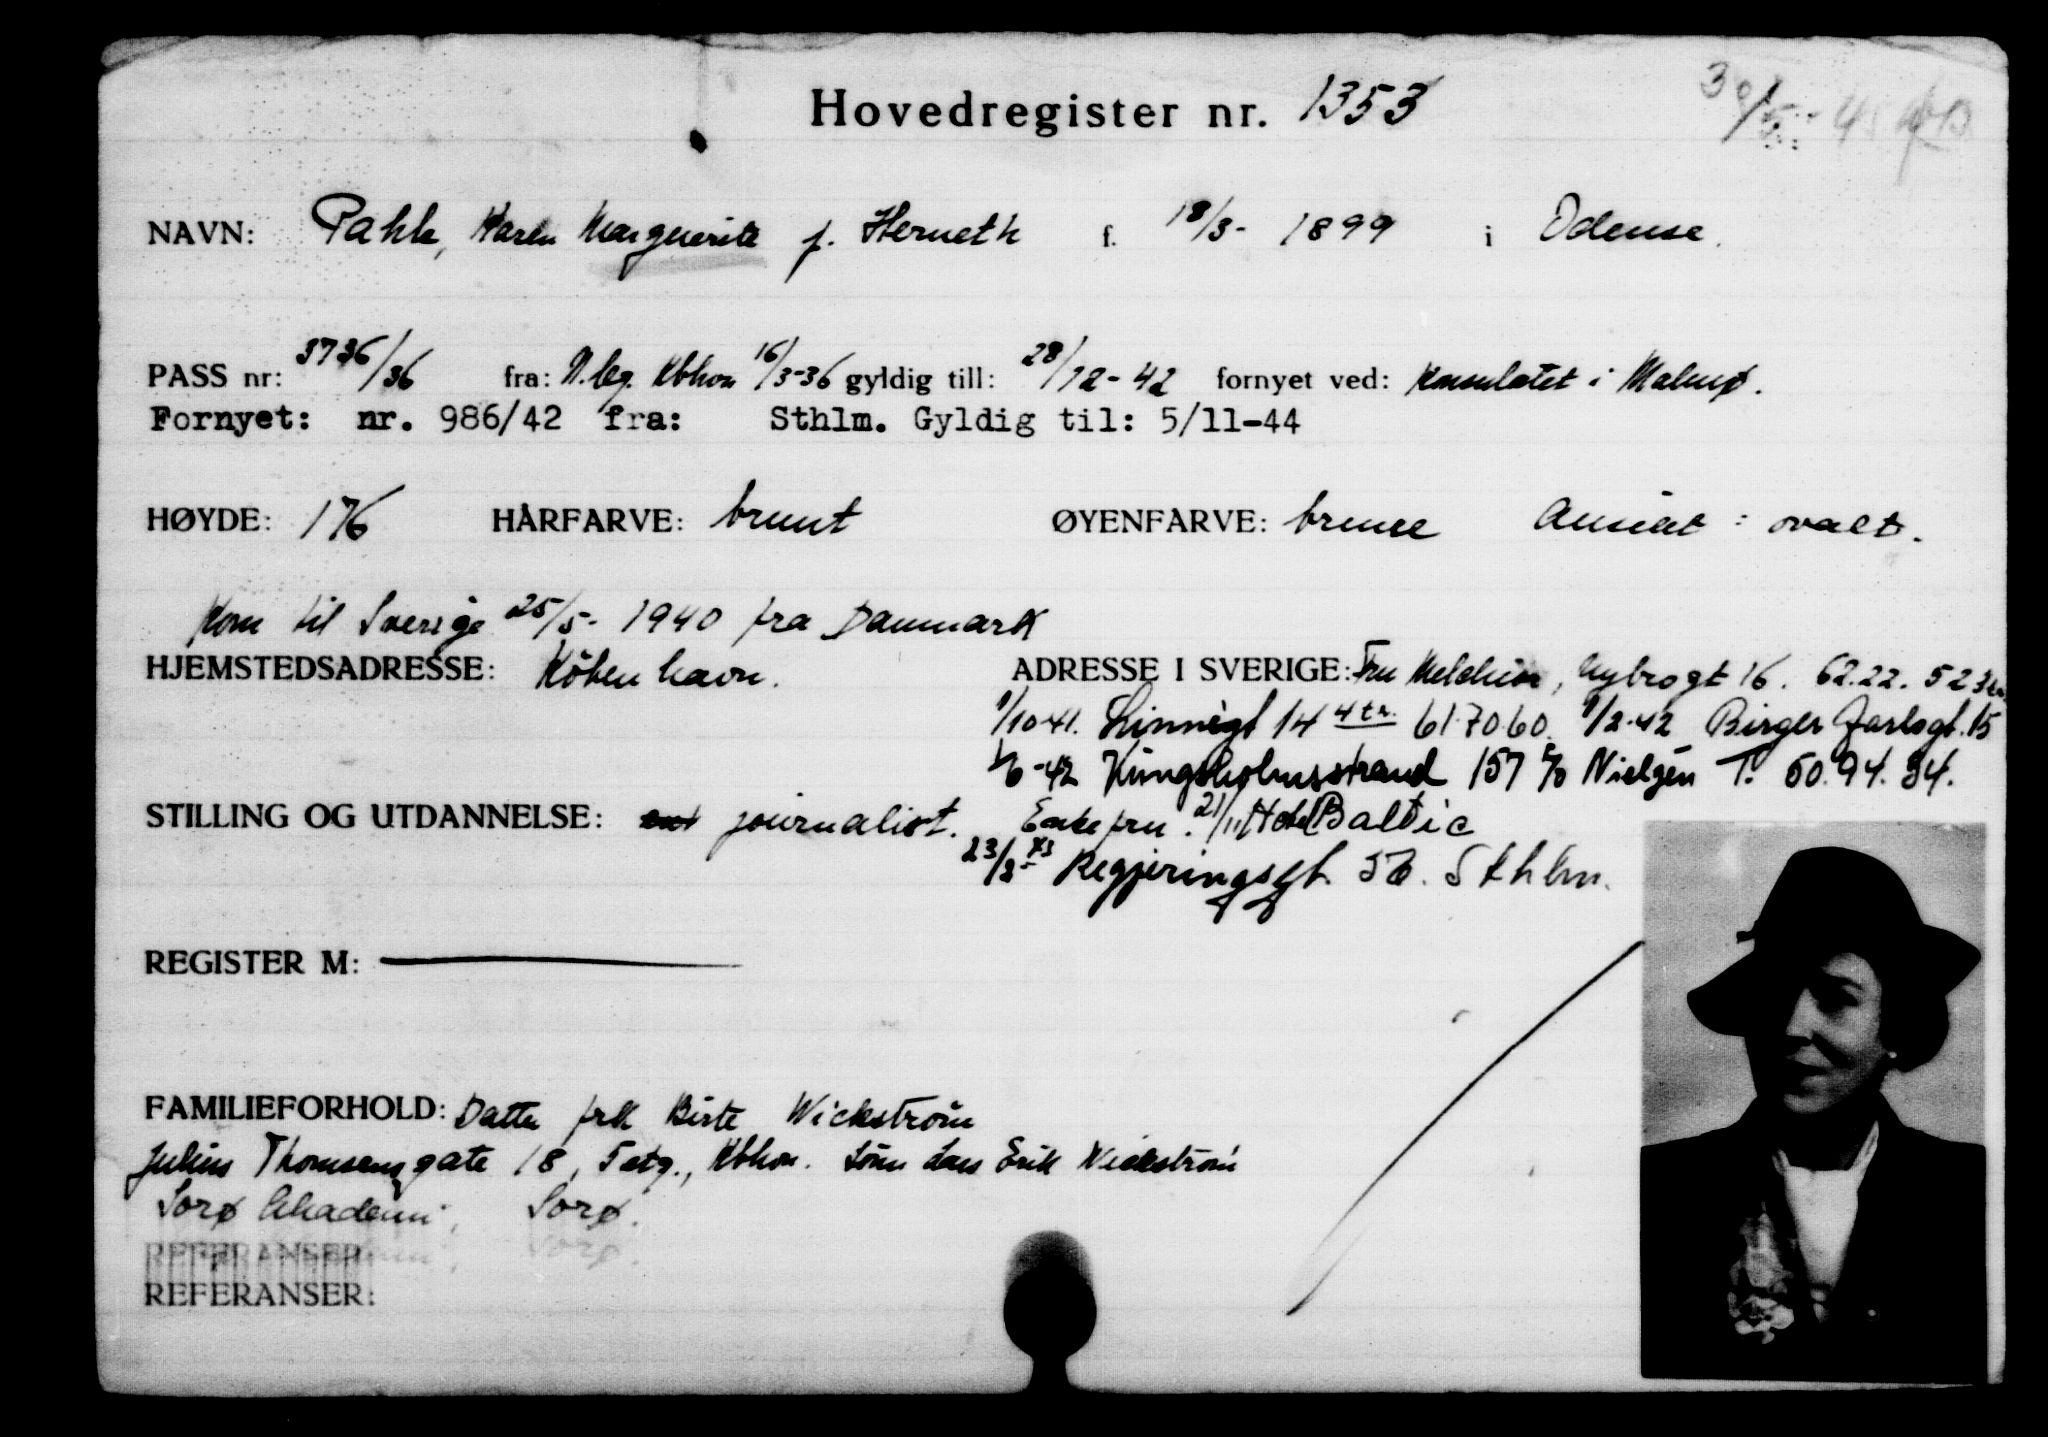 Hovedregister nr. 1353
30/5-45
NAVN: Pahle, Karen Marguerite f. Herneth f. 18/3- 1899 i Odense.
PASS nr: 3736/36 fra: N.leg. Kbhvn 16/3-36 gyldig till: 28/12-42 fornyet ved: Konsulatet i Malmø.
Fornyet: nr. 986/42 fra: Sthlm. Gyldig til: 5/11-44
HØYDE: 176 HÅRFARVE: brunt ØYENFARVE: brune Ansikt: ovalt.
Kom til Sverige 25/5- 1940 fra Danmark
HJEMSTEDSADRESSE: Köbenhavn. ADRESSE I SVERIGE: Fru Melchior, Nybrogt 16. 62.22.52 3tr
1/10-41. Linnégt 14 4 tr. 61.70.60. 1/2-42 Birger Jarlsgt. 15
1/6-42 Kungsholmsstrand 157 c/o Nielsen T. 50.94.94.
STILLING OG UTDANNELSE: journalist. Enkefru. 21/11 Hotel Baltic
23/2-43 Regjeringsgt. 56. Sthlm.
REGISTER M:
FAMILIEFORHOLD: Datter frk Birte Wickström
Julius Thomsensgate 18, 5 etg., Kbhvn. Sönn Lars Erik Wickström
Sorø Akademi, Sorø.
REFERANSER:
REFERANSER: